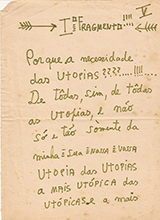 I DE V
FRAGMENTO...!!!!
Porque a necessidade
das UTOPIAS????.....!!!!
De Tôdas, sim, de tôdas
as utopias, e não
só e tão somente da
minha = SUA = NOSSA = VOSSA
UTOPIA DAS UTOPIAS
A MAIS UTÓPICA DAS
UTÓPICAS e a mais